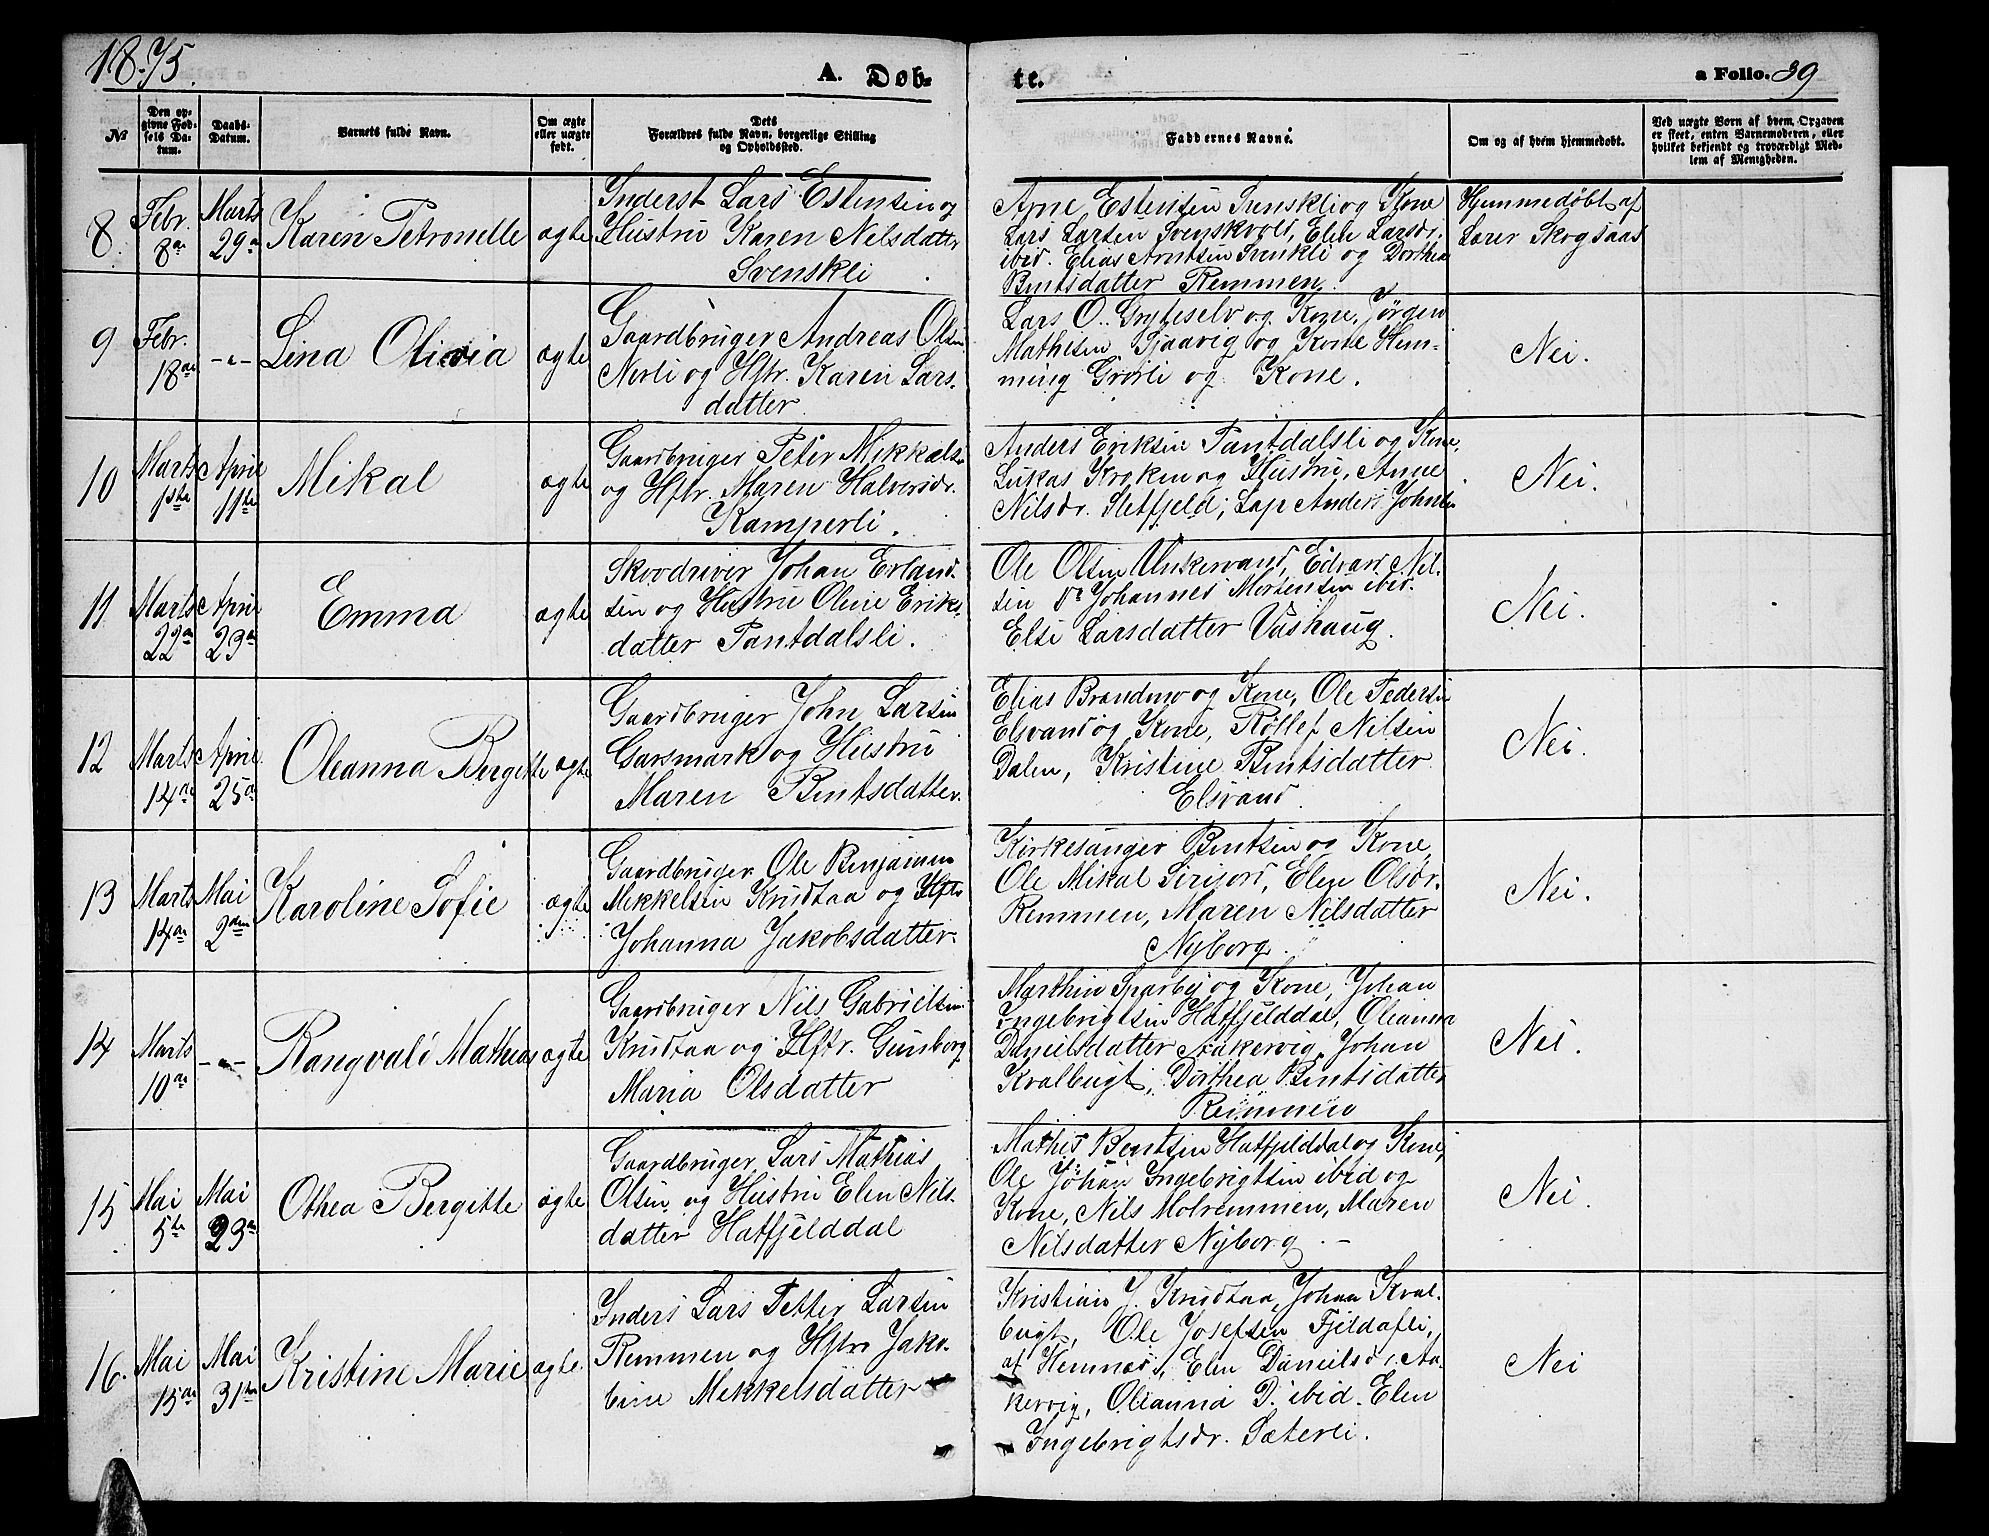 1875.
A. Døb-
te.
a Folio. 39
No
Den op-
givne Fød-
sels Da-
tum.
Daabs-
Datum.
Barnets fulde Navn.
Om ægte
eller uægte
født.
Dets
Forældres fulde Navn, borgerlige Stilling
og Opholdssted.
Faddernes Navne.
Om og af hvem hjemmedøbt.
Ved uægte Børn af hvem Opgaven
er skeet, enten Barnemoderen, eller
hvilket bekjendt og troværdigt Med-
lem af Menigheden.
8
Febr.
8de
Marts
29de
Karen Petronelle
ægte
Inderst Lars Estensen og
Hustru Karen Nilsdatter
Svenskli
Arne Estensen Svenskli og Kone
Lars Larsen Svenskvold, Elen Larsdr.
ibid. Elias Arntsen Svenkli og Dorthea
Bentsdatter Remmen.
Hemmedøbt af
Lærer Skogsaas
9
Febr.
18de
-"-
Lina Olivia
ægte
Gaardbruger Andreas Olsen
Nerli og Hstr. Karen Lars-
datter
Lars O. Gryteselv og Kone, Jørgen
Mathisen Sjaavig og Kone Hem-
ming Grøvli og Kone.
Nei.
10
Marts
1ste
Aprie
11te
Mikal
ægte
Gaardbruger Peter Mikkels
og Hstr. Maren Halvorsdr.
Kamperli.
Anders Eriksen Pantdalsli og Kone,
Lukas Kroken og Hustru, Anne
Nilsdr. Sletfjeld, Lap Anders Johnsen
Nei.
11
Marts
22de
Aprie
23de
Emma
ægte
Skoedriver Johan Erland-
sen og Hustru Oline Eriks-
datter Pantdalsli.
Ole Olsen Unkervand, Edvard Nil-
sen Johannes Mortensen ibid.
Else Larsdatter Vashaug.
Nei.
12
Marts
14de
Aprie
25de
Oleanna Bergitte
ægte
Gaardbruger John Larsen
Garsmark og Hustru
Maren Bentsdatter.
Elias Brandmo og Kone, Ole Pedersen
Elsvand og Kone, Rollef Nilsen
Dalen, Kristine Bentsdatter
Elsvand.
Nei.
13
Marts
14de
Mai
2den
Karoline Sofie
ægte
Gaardbruger Ole Benjamin
Mikkelsen Krudtaa og Hstr
Johanna Jakobsdatter.
Kirkesanger Bentsen og Kone,
Ole Mikal Sirijord, Elen Olsdr.
Remmen, Maren Nilsdatter
Nyborg.
Nei.
14
Marts
10de
-"-
Rangvald Mathias
ægte
Gaardbruger Nils Gabrielsen
Krudtaa og Hstr. Gunborg
Maria Olsdatter
Marthin Sparby og Kone, Johan
Ingebrigtsen Hatfjelddal, Oleanna
Danielsdatter Aakervig, Johan
Kvalbugt, Dorthea Bentsdatter
Remmen
Nei.
15
Mai
5te
Mai
23de
Othea Bergitte
ægte
Gaardbruger Lars Mathias
Olsen og Hustru Elen Nils-
datter Hatfjelddal
Mathis Bentsen Hatfjelddal og Kone,
Ole Johan Ingebrigtsen ibid og
Kone, Nils Molremmen, Maren
Nilsdatter Nyborg.
Nei.
16.
Mai
15de
Mai
31te
Kristine Marie
ægte.
Inders Lars Petter Larsen
Remmen og Hstro Jako-
bine Mikkelsdatter
Kristian J. Krudtaa, Johan Kval-
bugt, Ole Josefsen Fjeldafli,
af Hemnæs, Elen Danielsdr, Aa-
kervig, Oleanna D. ibid. Elen
Ingebrigtsdr. Sæterli.
Nei